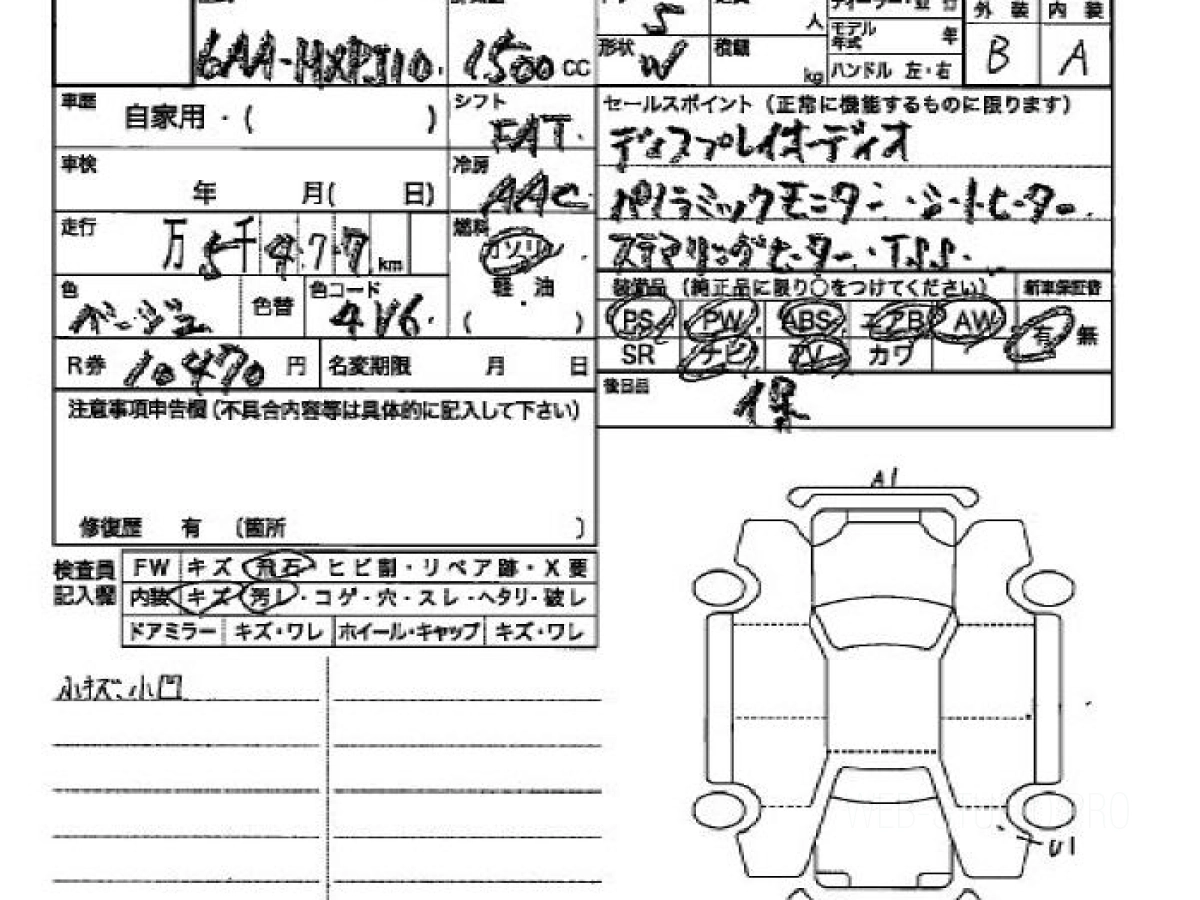 S
人
モデル
年式
年
外装 内装
6AA-MXPJ10.
1500 CC
形状 W
積載
kg
ハンドル 左・右
B
A
車歴
自家用・( )
シフト
FAT.
セールスポイント（正常に機能するものに限ります）
ディスプレイオーディオ
車検
年 月( 日)
冷房
AAC
パノラミックモニター・シートヒーター
走行
万 5千 4 7 7 km
燃料
ガソリン
ステアリングヒーター・TSS.
軽・油
( )
装備品（純正品に限り○をつけてください）
新車保証書
色
ベージュ
色替
色コード
4V6.
PS PW ABS エアB AW
有 無
SR ナビ TV カワ
R券 10470 円
名変期限 月 日
後日品
保
注意事項申告欄（不具合内容等は具体的に記入して下さい）
修復歴 有 〔箇所 〕
A1
検査員
記入欄
FW キズ・飛石・ヒビ割・リペア跡・X要
内装 キズ・汚レ・コゲ・穴・スレ・ヘタリ・破レ
ドアミラー キズ・ワレ ホイール・キャップ キズ・ワレ
小キズ、小凹
U1